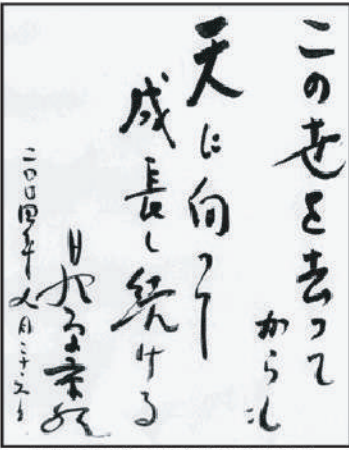 この世を去って
からも
天に向って
成長し続ける
日野原重明
二〇〇四年